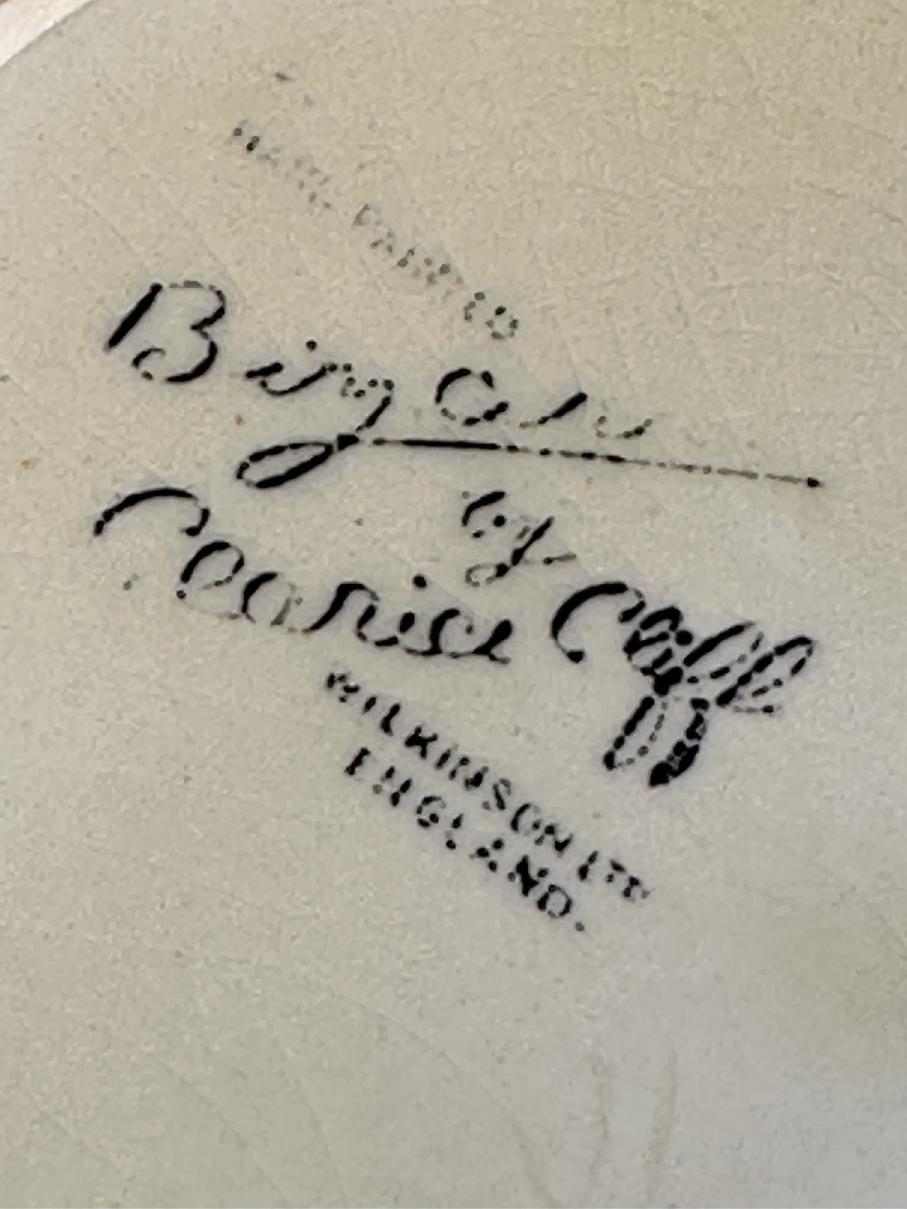 HAND PAINTED
Bizarre
by
Clarice Cliff
WILKINSON LTD
ENGLAND.